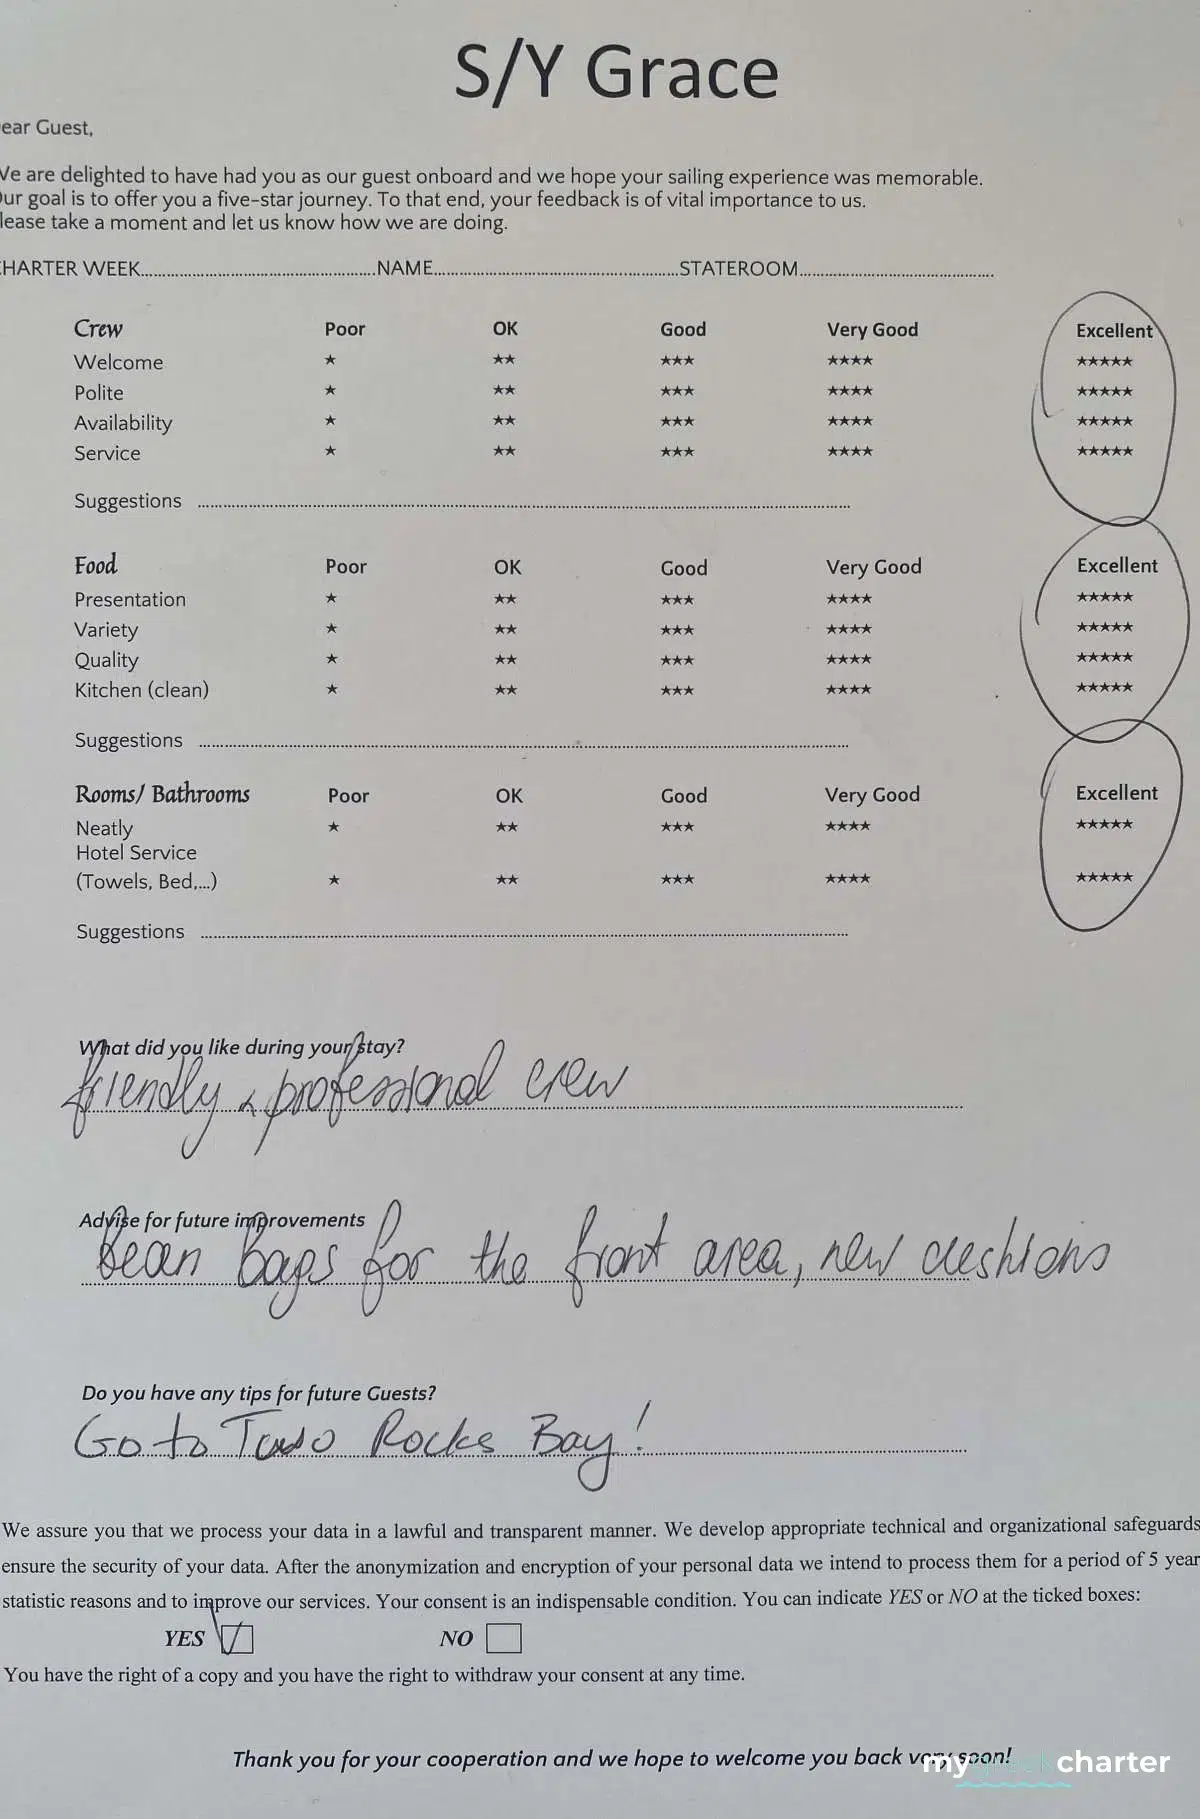 S/Y Grace
ear Guest,
We are delighted to have had you as our guest onboard and we hope your sailing experience was memorable.
Our goal is to offer you a five-star journey. To that end, your feedback is of vital importance to us.
lease take a moment and let us know how we are doing.
CHARTER WEEK.......... NAME.......... STATEROOM..........
Crew Poor OK Good Very Good Excellent
Welcome ★ ★★ ★★★ ★★★★ ★★★★★
Polite ★ ★★ ★★★ ★★★★ ★★★★★
Availability ★ ★★ ★★★ ★★★★ ★★★★★
Service ★ ★★ ★★★ ★★★★ ★★★★★
Suggestions ..........
Food Poor OK Good Very Good Excellent
Presentation ★ ★★ ★★★ ★★★★ ★★★★★
Variety ★ ★★ ★★★ ★★★★ ★★★★★
Quality ★ ★★ ★★★ ★★★★ ★★★★★
Kitchen (clean) ★ ★★ ★★★ ★★★★ ★★★★★
Suggestions ..........
Rooms/ Bathrooms Poor OK Good Very Good Excellent
Neatly ★ ★★ ★★★ ★★★★ ★★★★★
Hotel Service
(Towels, Bed,...) ★ ★★ ★★★ ★★★★ ★★★★★
Suggestions ..........
What did you like during your stay?
friendly & professional crew
Advise for future improvements
bean bags for the front area, new cushions
Do you have any tips for future Guests?
Go to Rocks Bay!
We assure you that we process your data in a lawful and transparent manner. We develop appropriate technical and organizational safeguards
ensure the security of your data. After the anonymization and encryption of your personal data we intend to process them for a period of 5 year
statistic reasons and to improve our services. Your consent is an indispensable condition. You can indicate YES or NO at the ticked boxes:
YES NO
You have the right of a copy and you have the right to withdraw your consent at any time.
Thank you for your cooperation and we hope to welcome you back very soon!
mygreekcharter